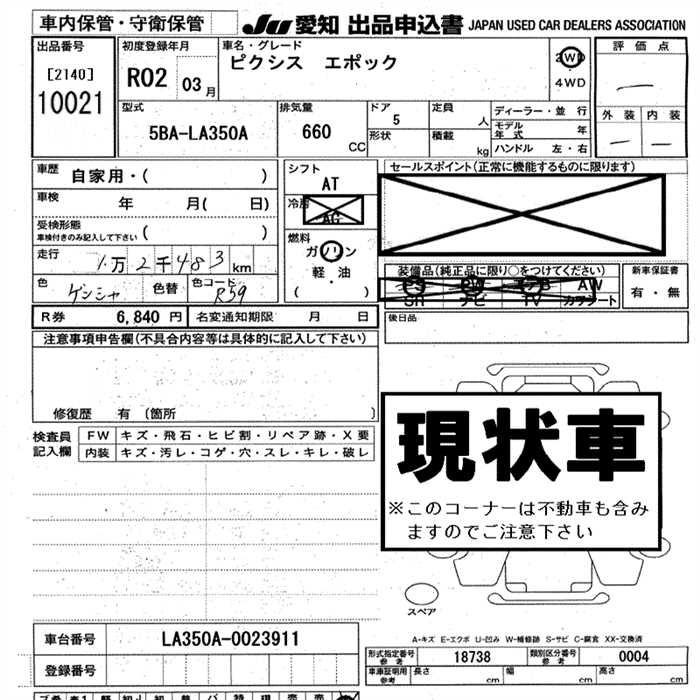 車内保管・守衛保管
JU 愛知 出品申込書 JAPAN USED CAR DEALERS ASSOCIATION
出品番号 初度登録年月 車名・グレード 評価点
[2140] R02 03月 ピクシス エポック 2WD
10021 4WD
型式 排気量 ドア 定員 ディーラー・並行 外装 内装
5BA-LA350A 660 CC 5 人 モデル年式 年
形状 積載 kg ハンドル 左・右
車歴 自家用・( ) シフト AT セールスポイント(正常に機能するものに限ります)
車検 年 月( 日) 冷房 AC
受検形態 車検付きのみ記入して下さい ( )
走行 1万2千483 km 燃料 ガソリン 軽・油 ( )
色 ゲンシャ 色替 色コード R59
装備品(純正品に限り○をつけてください) 新車保証書
PS PW AW 有・無
SR ナビ TV カワシート
R券 6,840円 名変通知期限 月 日 後日品
注意事項申告欄(不具合内容等は具体的に記入して下さい)
修復歴 有 (箇所 )
検査員記入欄 FW キズ・飛石・ヒビ割・リペア跡・X要
内装 キズ・汚レ・コゲ・穴・スレ・キレ・破レ
現状車
※このコーナーは不動車も含み
ますのでご注意下さい
スペア
A-キズ E-エクボ U-凹み W-補修跡 S-サビ C-腐食 XX-交換済
車台番号 LA350A-0023911
形式指定番号 参考 18738 類別区分番号 参考 0004
登録番号
車庫証明用 参考 長さ cm 幅 cm 高さ cm